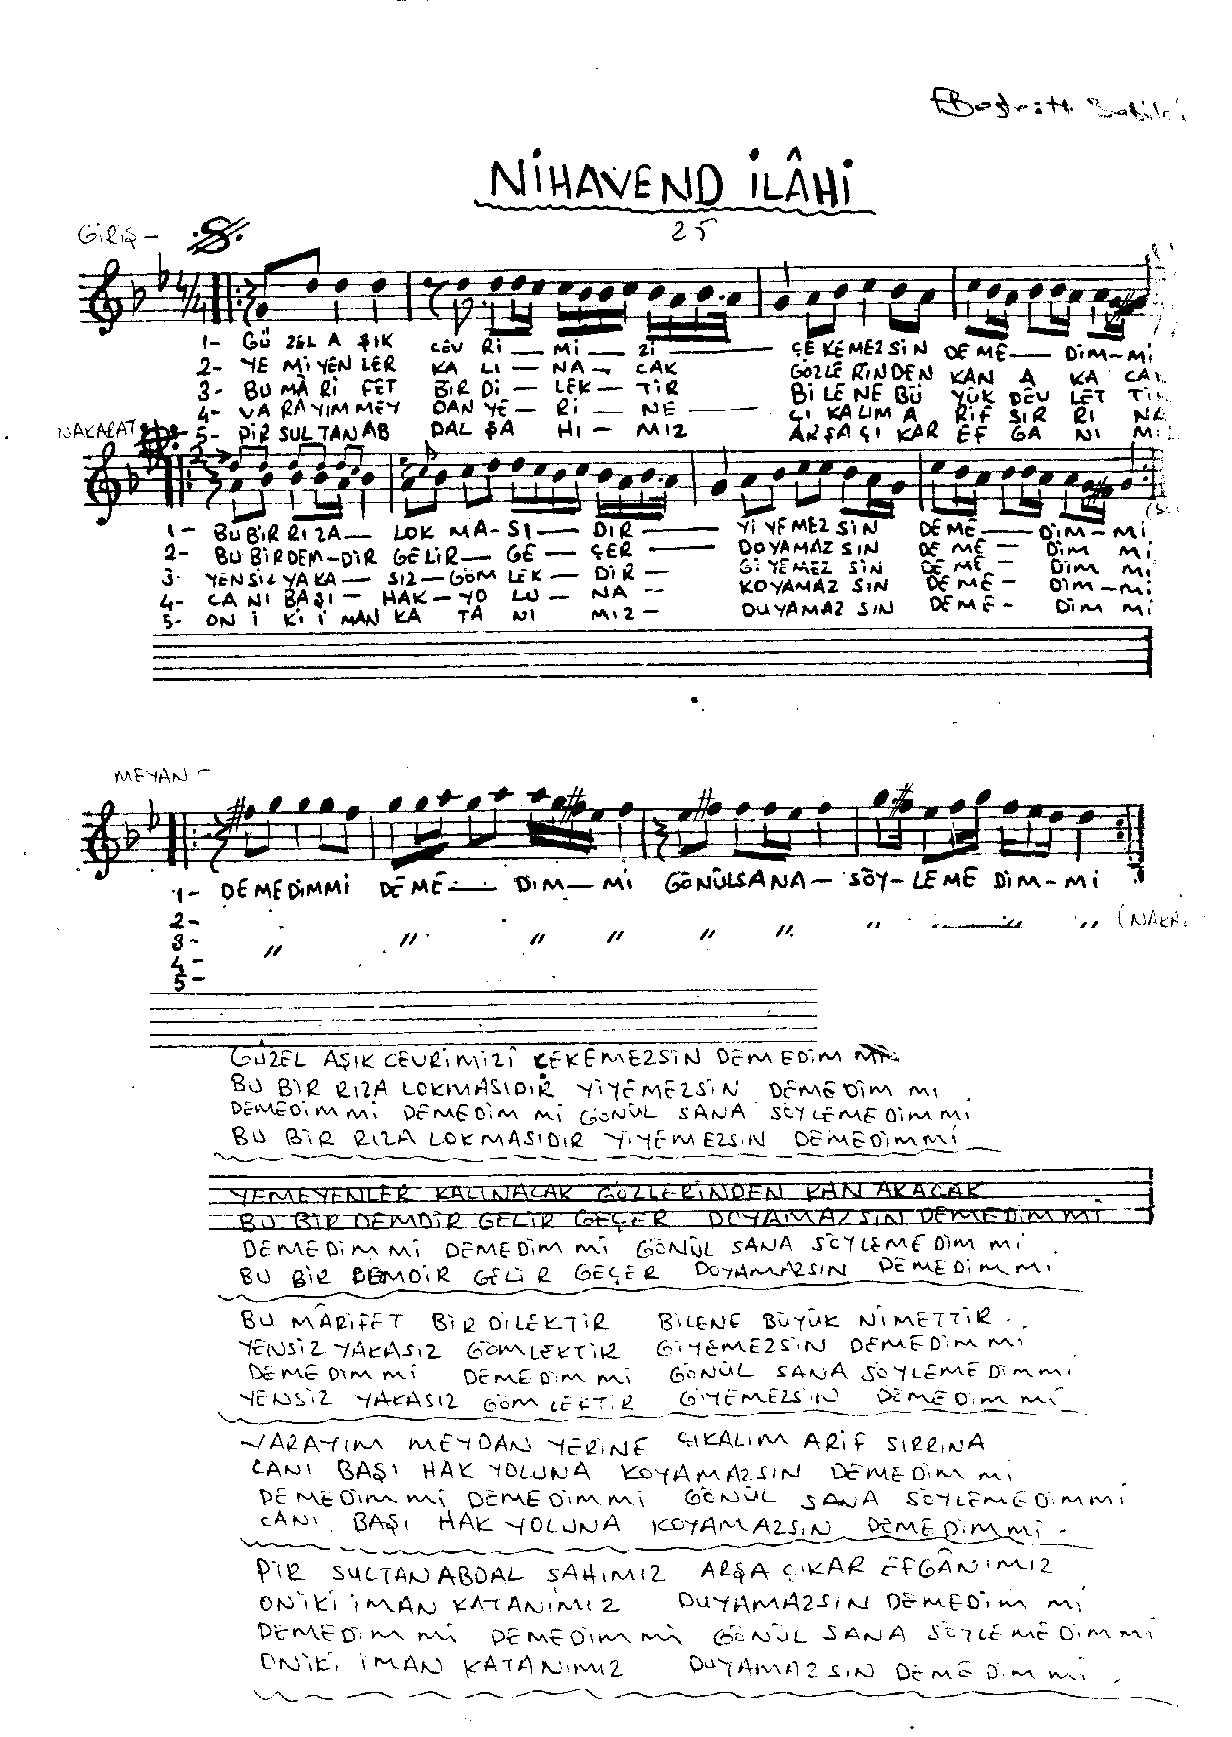 NİHAVEND İLÂHİ
25
GİRİŞ -
4/4
1- GÜ ZEL A ŞIK CEV Rİ — Mİ — Zİ — ÇE KE MEZ SİN DE ME — DİM-Mİ
2- YE Mİ YEN LER KA LI — NA — CAK GÖZLE RİNDEN KAN A KA CAK
3- BU MÂ Rİ FET BİR Dİ — LEK — TİR BİLE NE BÜ YÜK DEV LET TİR
4- VA RA YIM MEY DAN YE — Rİ — NE — ÇI KALIM A RİF SIR RI NA
5- PİR SUL TAN AB DAL ŞA HI — MIZ ARŞA ÇI KAR EF GA NI MIZ
NAKARAT
1- BU BİR RIZA — LOK MA-SI — DIR — YİYEMEZ SİN DEME — DİM-Mİ
2- BU BİR DEM-DİR GELİR — GE — ÇER — DOYAMAZ SIN DE ME — DİM Mİ
3- YENSİZ YAKA — SIZ — GÖM LEK — DİR — GİYEMEZ SİN DE ME — DİM Mİ
4- CA NI BAŞI — HAK — YO LU — NA — KOYAMAZ SIN DE ME — DİM-Mİ
5- ON İ Kİ İ MAN KA TA NI MIZ — DUYAMAZ SIN DE ME- DİM Mİ
MEYAN -
1- DEMEDİMMİ DEME — DİM — Mİ GÖNÜLSANA — SÖY-LEME DİM-Mİ
2- " " " " " " " " "
3-
4-
5-
GÜZEL AŞIK CEVRİMİZİ ÇEKEMEZSİN DEMEDİM Mİ
BU BİR RIZA LOKMASIDIR YİYEMEZSİN DEMEDİM Mİ
DEMEDİM Mİ DEMEDİM Mİ GÖNÜL SANA SÖYLEMEDİM Mİ
BU BİR RIZA LOKMASIDIR YİYEMEZSİN DEMEDİMMİ
YEMEYENLER KALINACAK GÖZLERİNDEN KAN AKACAK
BU BİR DEMDİR GELİR GEÇER DOYAMAZSIN DEMEDİM Mİ
DEMEDİM Mİ DEMEDİM Mİ GÖNÜL SANA SÖYLEMEDİM Mİ
BU BİR DEMDİR GELİR GEÇER DOYAMAZSIN DEMEDİM Mİ
BU MÂRİFET BİR DİLEKTİR BİLENE BÜYÜK NİMETTİR
YENSİZ YAKASIZ GÖMLEKTİR GİYEMEZSİN DEMEDİM Mİ
DEMEDİM Mİ DEMEDİM Mİ GÖNÜL SANA SÖYLEMEDİMMİ
YENSİZ YAKASIZ GÖMLEKTİR GİYEMEZSİN DEMEDİM Mİ
VARAYIM MEYDAN YERİNE ÇIKALIM ARİF SIRRINA
CANI BAŞI HAK YOLUNA KOYAMAZSIN DEMEDİM Mİ
DEMEDİM Mİ DEMEDİM Mİ GÖNÜL SANA SÖYLEMEDİMMİ
CANI BAŞI HAK YOLUNA KOYAMAZSIN DEMEDİMMİ -
PİR SULTAN ABDAL ŞAHIMIZ ARŞA ÇIKAR EFGÂNIMIZ
ONİKİ İMAN KATANIMIZ DUYAMAZSIN DEMEDİM Mİ
DEMEDİM Mİ DEMEDİM Mİ GÖNÜL SANA SÖYLEMEDİM Mİ
ONİKİ İMAN KATANIMIZ DUYAMAZSIN DEMEDİM Mİ